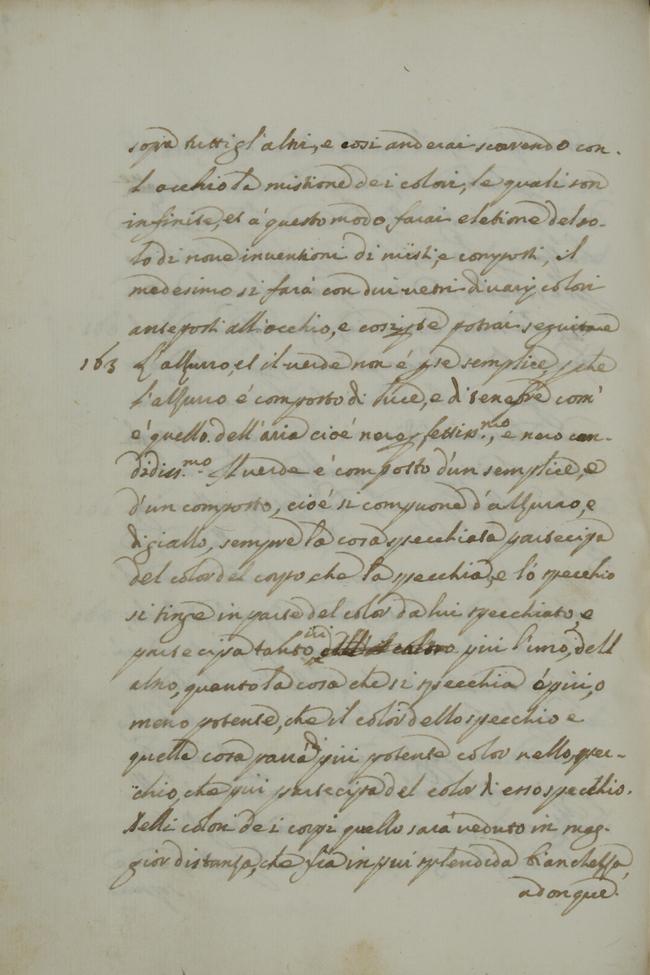 sopra tutti gl'altri, e così anderai scorrendo con-
l'occhio la mistione dei colori, le quali son
infinite, et à questo modo farai eletione del so-
lo di nove inventioni di misti, e composti, il
medesimo si farà con dui vetri di varij colori
anteposti all'occhio, e così p te potrai seguitare
163 L'azzurro, et il verde non è p se semplice, p che
l'azzurro è composto di luce, e di tenebre com'
è quello dell'aria cioè nero p fettiss.mo, e nero can-
didiss.mo Il verde è composto d'un semplice, e
d'un composto, cioè si compuone d'azzurro, e
di giallo, sempre la cosa specchiata partecipa
del color del corpo che la specchia, e lo specchio
si tinge in parte del color da lui specchiato, e
partecipa tanto più l'uno, dell
altro, quanto la cosa che si specchia è più, o
meno potente, che il color dello specchio e
quella cosa parrà di più potente color nello spec-
chio, che più partecipa del color di esso specchio.
Delli colori dei corpi quello sarà veduto in mag-
gior distanza, che fia in più splendida bianchezza,
adonque